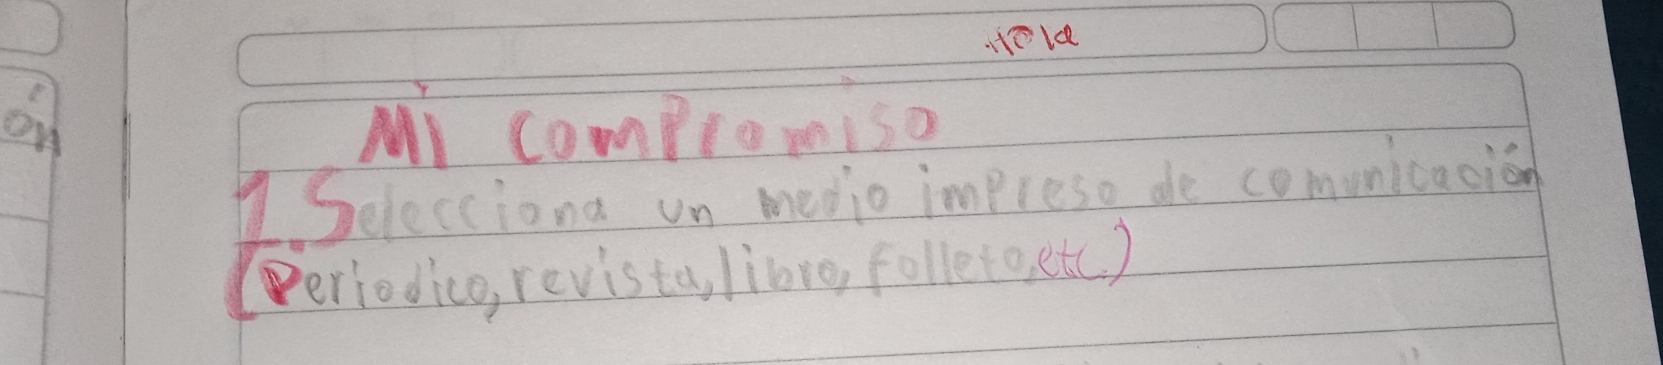 Hola
Mi compromiso
1. Selecciona un medio impreso de comunicación
(Periodico, revista, libro, folleto, etc.)
ón